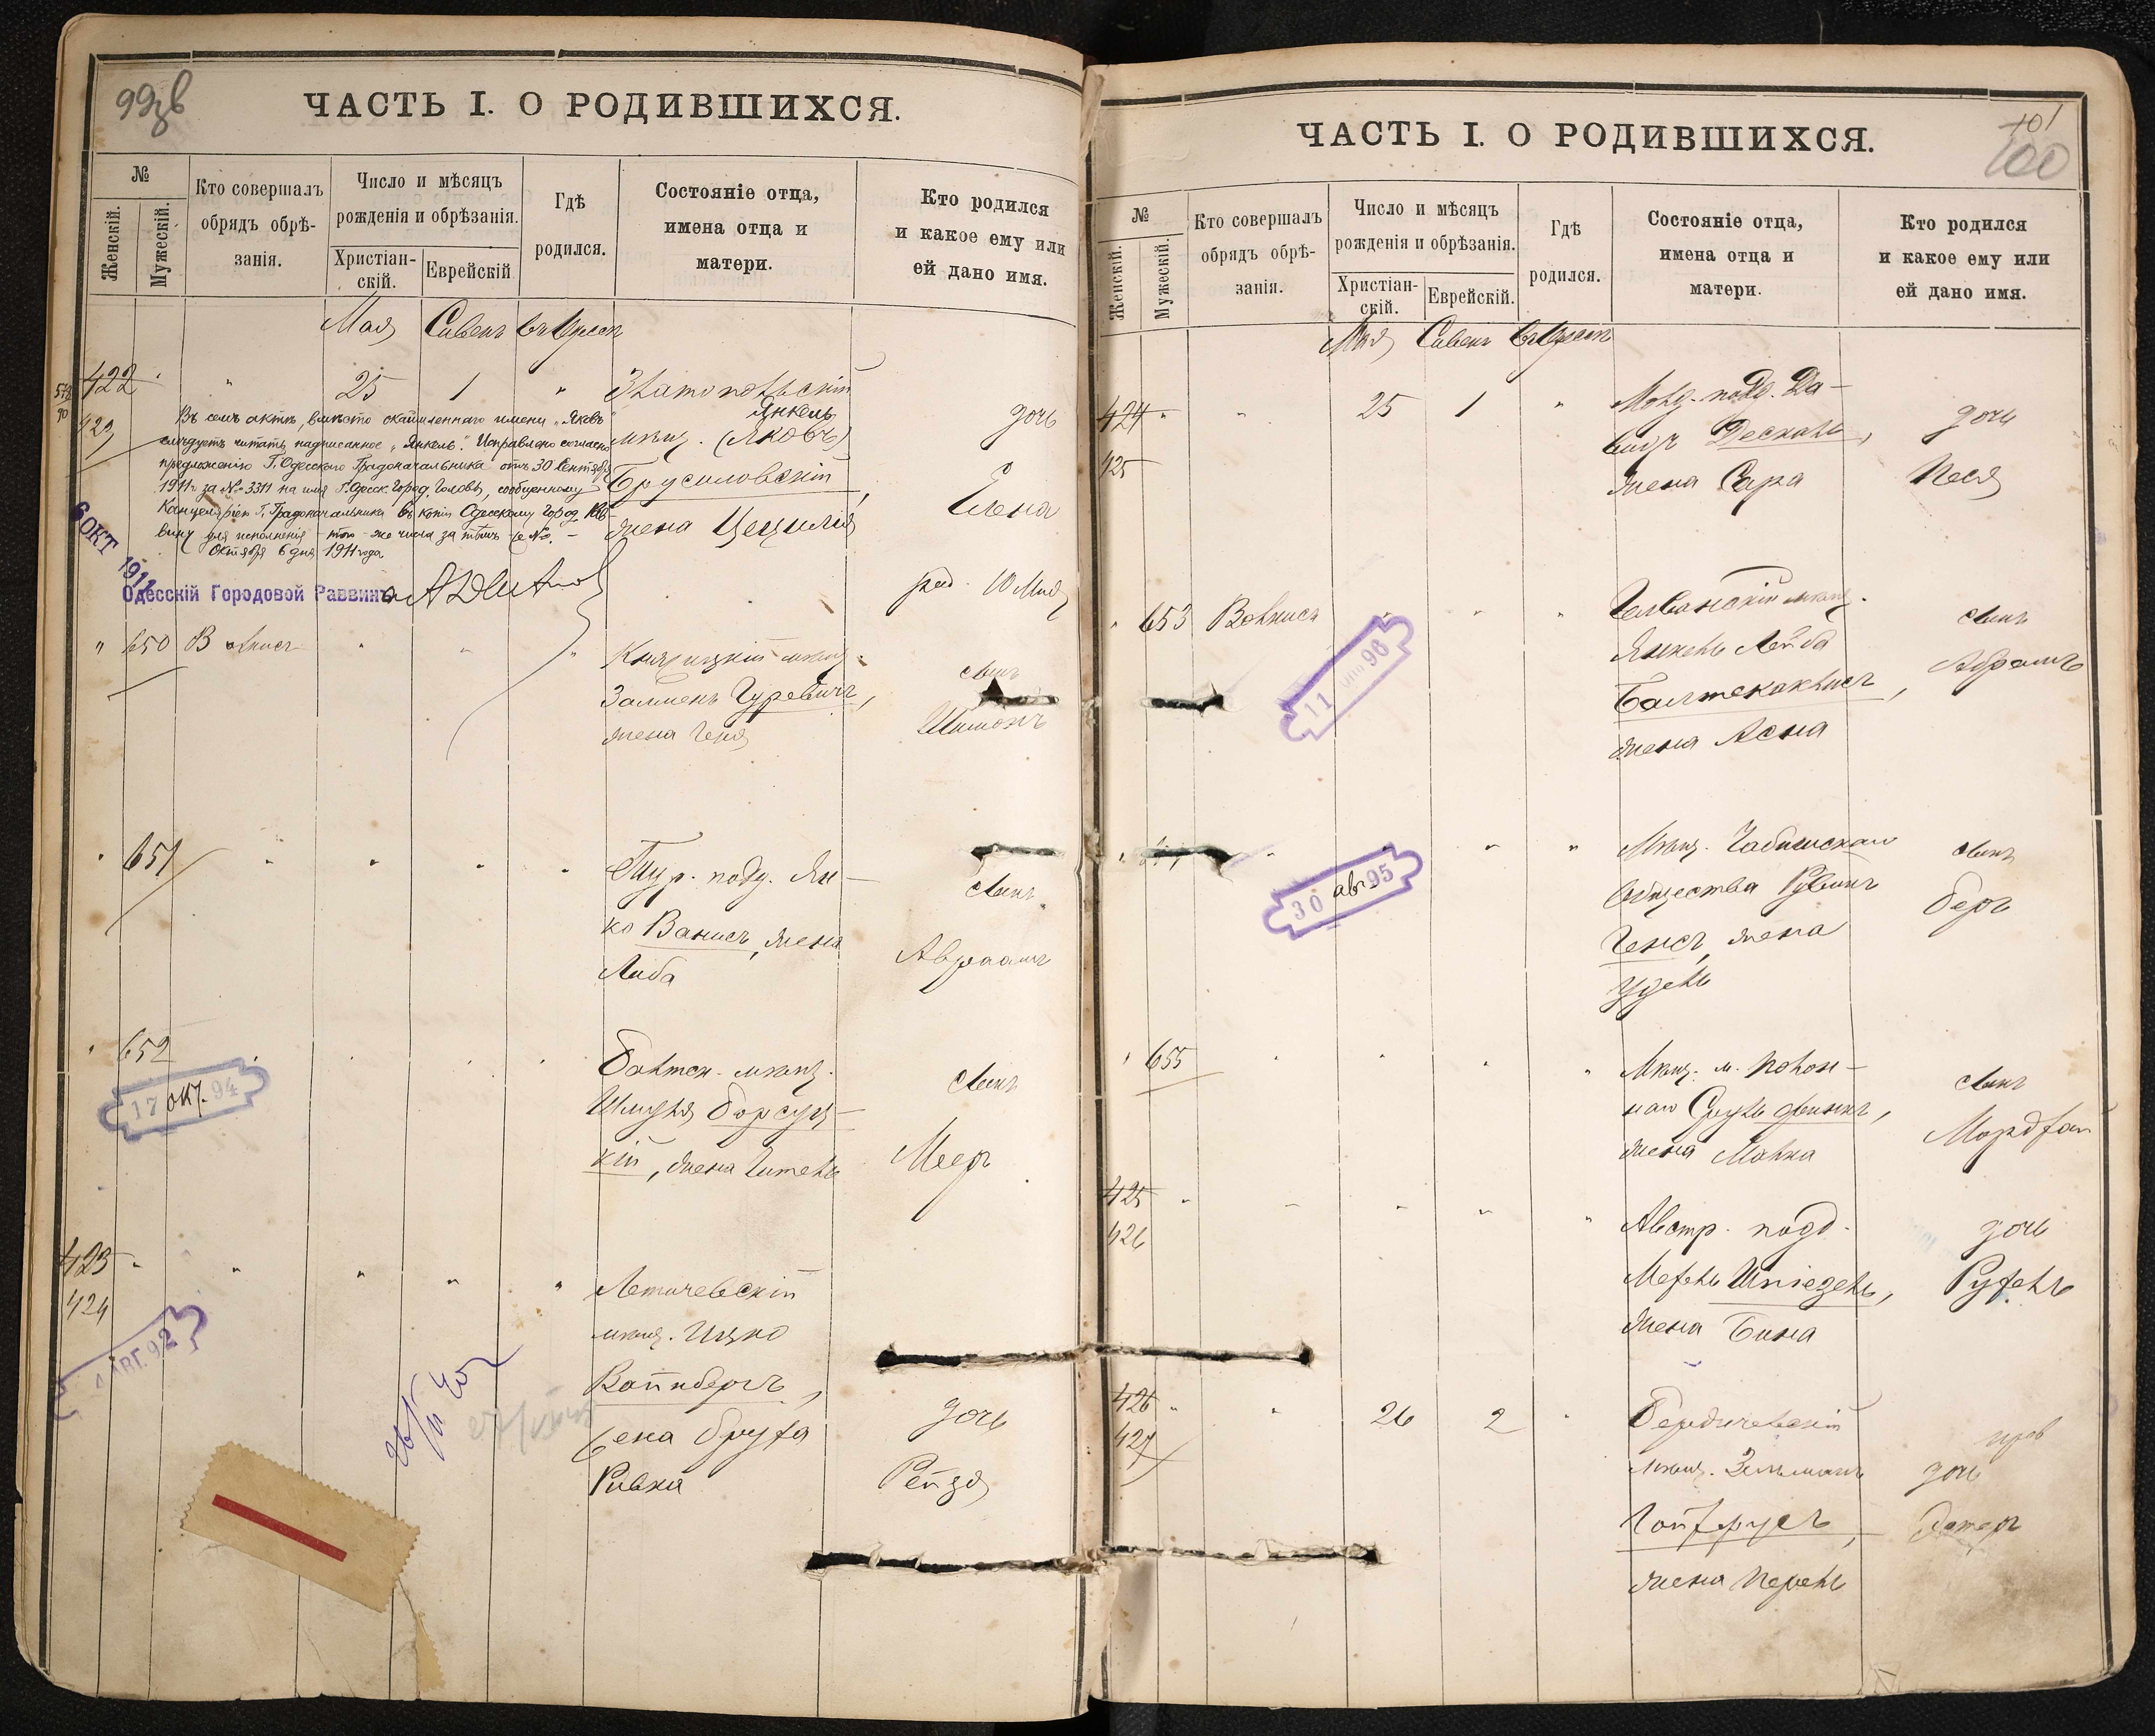 99
ЧАСТЬ I. О РОДИВШИХСЯ.
№
Женскій.
Мужескій.
Кто совершалъ
обрядъ обрѣ-
занія.
Число и мѣсяцъ
рожденія и обрѣзанія.
Христіан-
скій.
Еврейскій.
Гдѣ
родился.
Состояніе отца,
имена отца и
матери.
Кто родился
и какое ему или
ей дано имя.
Мая Сивенъ въ Одессѣ
422 " 25 1 " Златопольскій
423
Янкель
мѣщ. (Яковъ)
Брусиловскій,
жена Цецилія
дочь
Елена
род. 10 Мая
Въ семъ актѣ, вмѣсто скобленнаго имени „Яковъ"
слѣдуетъ читать надписанное „Янкель". Исправлено согласно
предложенію Г. Одесскаго Градоначальника отъ 30 Сентября
1911 г. за № 3311 на имя Г. Одесск. Город. Головы, сообщенному
Канцеляріей Г. Градоначальника въ копіи Одесскому Город. Рав-
вину для исполненія того-же числа за тѣмъ же №. –
Октября 6 дня 1911 года
6 ОКТ 1911
Одесскій Городовой Раввинъ
" 650 Вольнисъ " " "
мѣщ.
Залменъ Гуревичъ,
жена Геня
сынъ
Шимонъ
" 651 " " " "
Тур. подд. Ян-
ко Ванисъ, жена
Либа
сынъ
Авраамъ
" 652 " " " "
17 ОКТ. 94
мѣщ.
Шмуль Борсуц-
кій, жена Гитель
сынъ
Меер
423 " " " " "
424
АВГ. 92
Летичевскій
мѣщ. Ицко
Вайнбергъ,
жена Бруха
Ривка
дочь
Рейзя
ЧАСТЬ I. О РОДИВШИХСЯ.
101
100
№
Женскій.
Мужескій.
Кто совершалъ
обрядъ обрѣ-
занія.
Число и мѣсяцъ
рожденія и обрѣзанія.
Христіан-
скій.
Еврейскій.
Гдѣ
родился.
Состояніе отца,
имена отца и
матери.
Кто родился
и какое ему или
ей дано имя.
Мая Сивенъ въ Одессѣ
424 " " 25 1 "
425
Молд. подд. Да-
видъ Дескаль,
жена Сара
дочь
Песя
" 653 Вольнисъ " " "
11 98
мѣщ.
Янкель Лейба
жена Асна
сынъ
Абрамъ
30 авг 95
Мѣщ.
общества Рувинъ
Генсъ, жена
Удель
сынъ
Беръ
" 655 " " " "
Мѣщ. м. Полон-
наго Сруль Финкъ,
жена Малка
сынъ
Мордхай
425 " " " " "
426
Австр. подд.
Мехель Шпіегель,
жена Бина
дочь
Рухель
426 " " 26 2 "
427
Бердичевскій
мѣщ. Зельманъ
жена Перель
дочь
Эстеръ